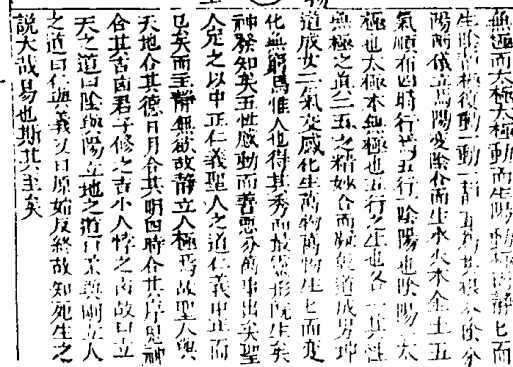 無極而太極太極動而生陽動極而靜匕而
生陰靜極復動一動一靜互爲其根分陰分
陽兩儀立焉陽變陰合而生水火木金土五
氣順布四時行焉五行一陰陽也陰陽一太
極也太極本無極也五行之生也各一其性
無極之真二五之精妙合而凝乾道成男坤
道成女二氣交感化生萬物萬物生匕而變
化無窮焉惟人也得其秀而最靈形既生矣
神發知矣五性感動而善惡分萬事出矣聖
人定之以中正仁義聖人之道仁義中正而
已矣而主靜無欲故靜立人極焉故聖人與
天地合其德日月合其明四時合其序鬼神
合其吉凶君子修之吉小人悖之凶故曰立
天之道曰陰與陽立地之道曰柔與剛立人
之道曰仁與義又曰原始反終故知死生之
說大哉易也斯其至矣